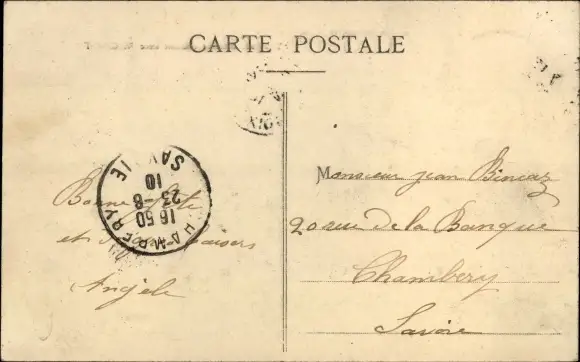 CARTE POSTALE
CHAMBERY
SAVOIE
16 50
23-8
10
Bonne fête
et baisers
Angèle
Monsieur Jean
20 rue de la Banque
Chambéry
Savoie